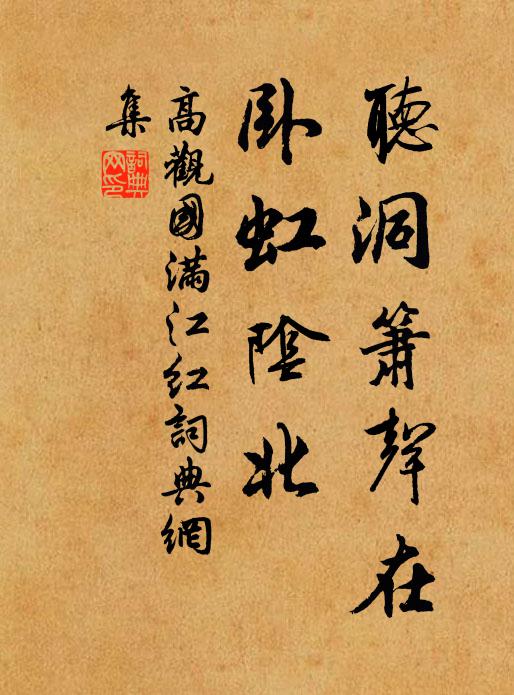 聽洞簫聲在
卧虹陰北
高觀國滿江紅詞典網
集
詞典
网印